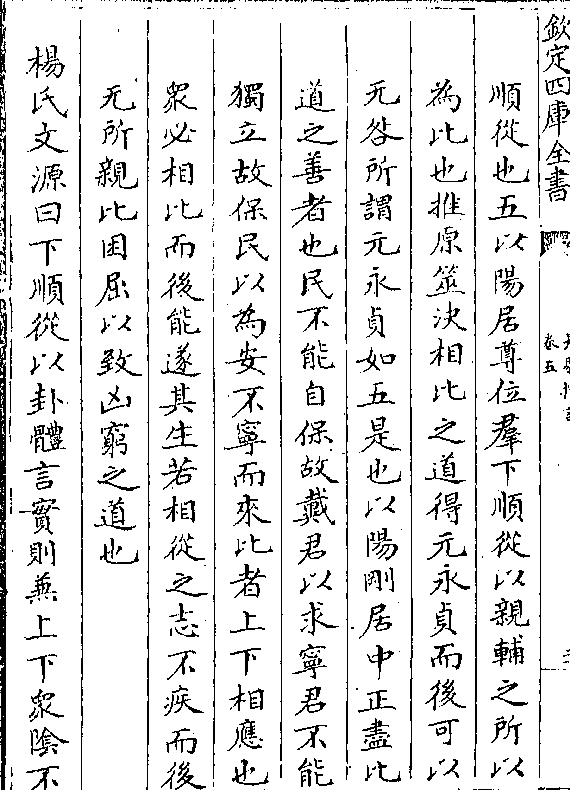 欽定四庫全書
卷五
順從也五以陽居尊位羣下順從以親輔之所以
為比也推原筮決相比之道得元永貞而後可以
无咎所謂元永貞如五是也以陽剛居中正盡比
道之善者也民不能自保故戴君以求寧君不能
獨立故保民以為安不寧而來比者上下相應也
衆必相比而後能遂其生若相從之志不疾而後
无所親比困屈以致凶窮之道也
楊氏文源曰下順從以卦體言實則兼上下衆陰不